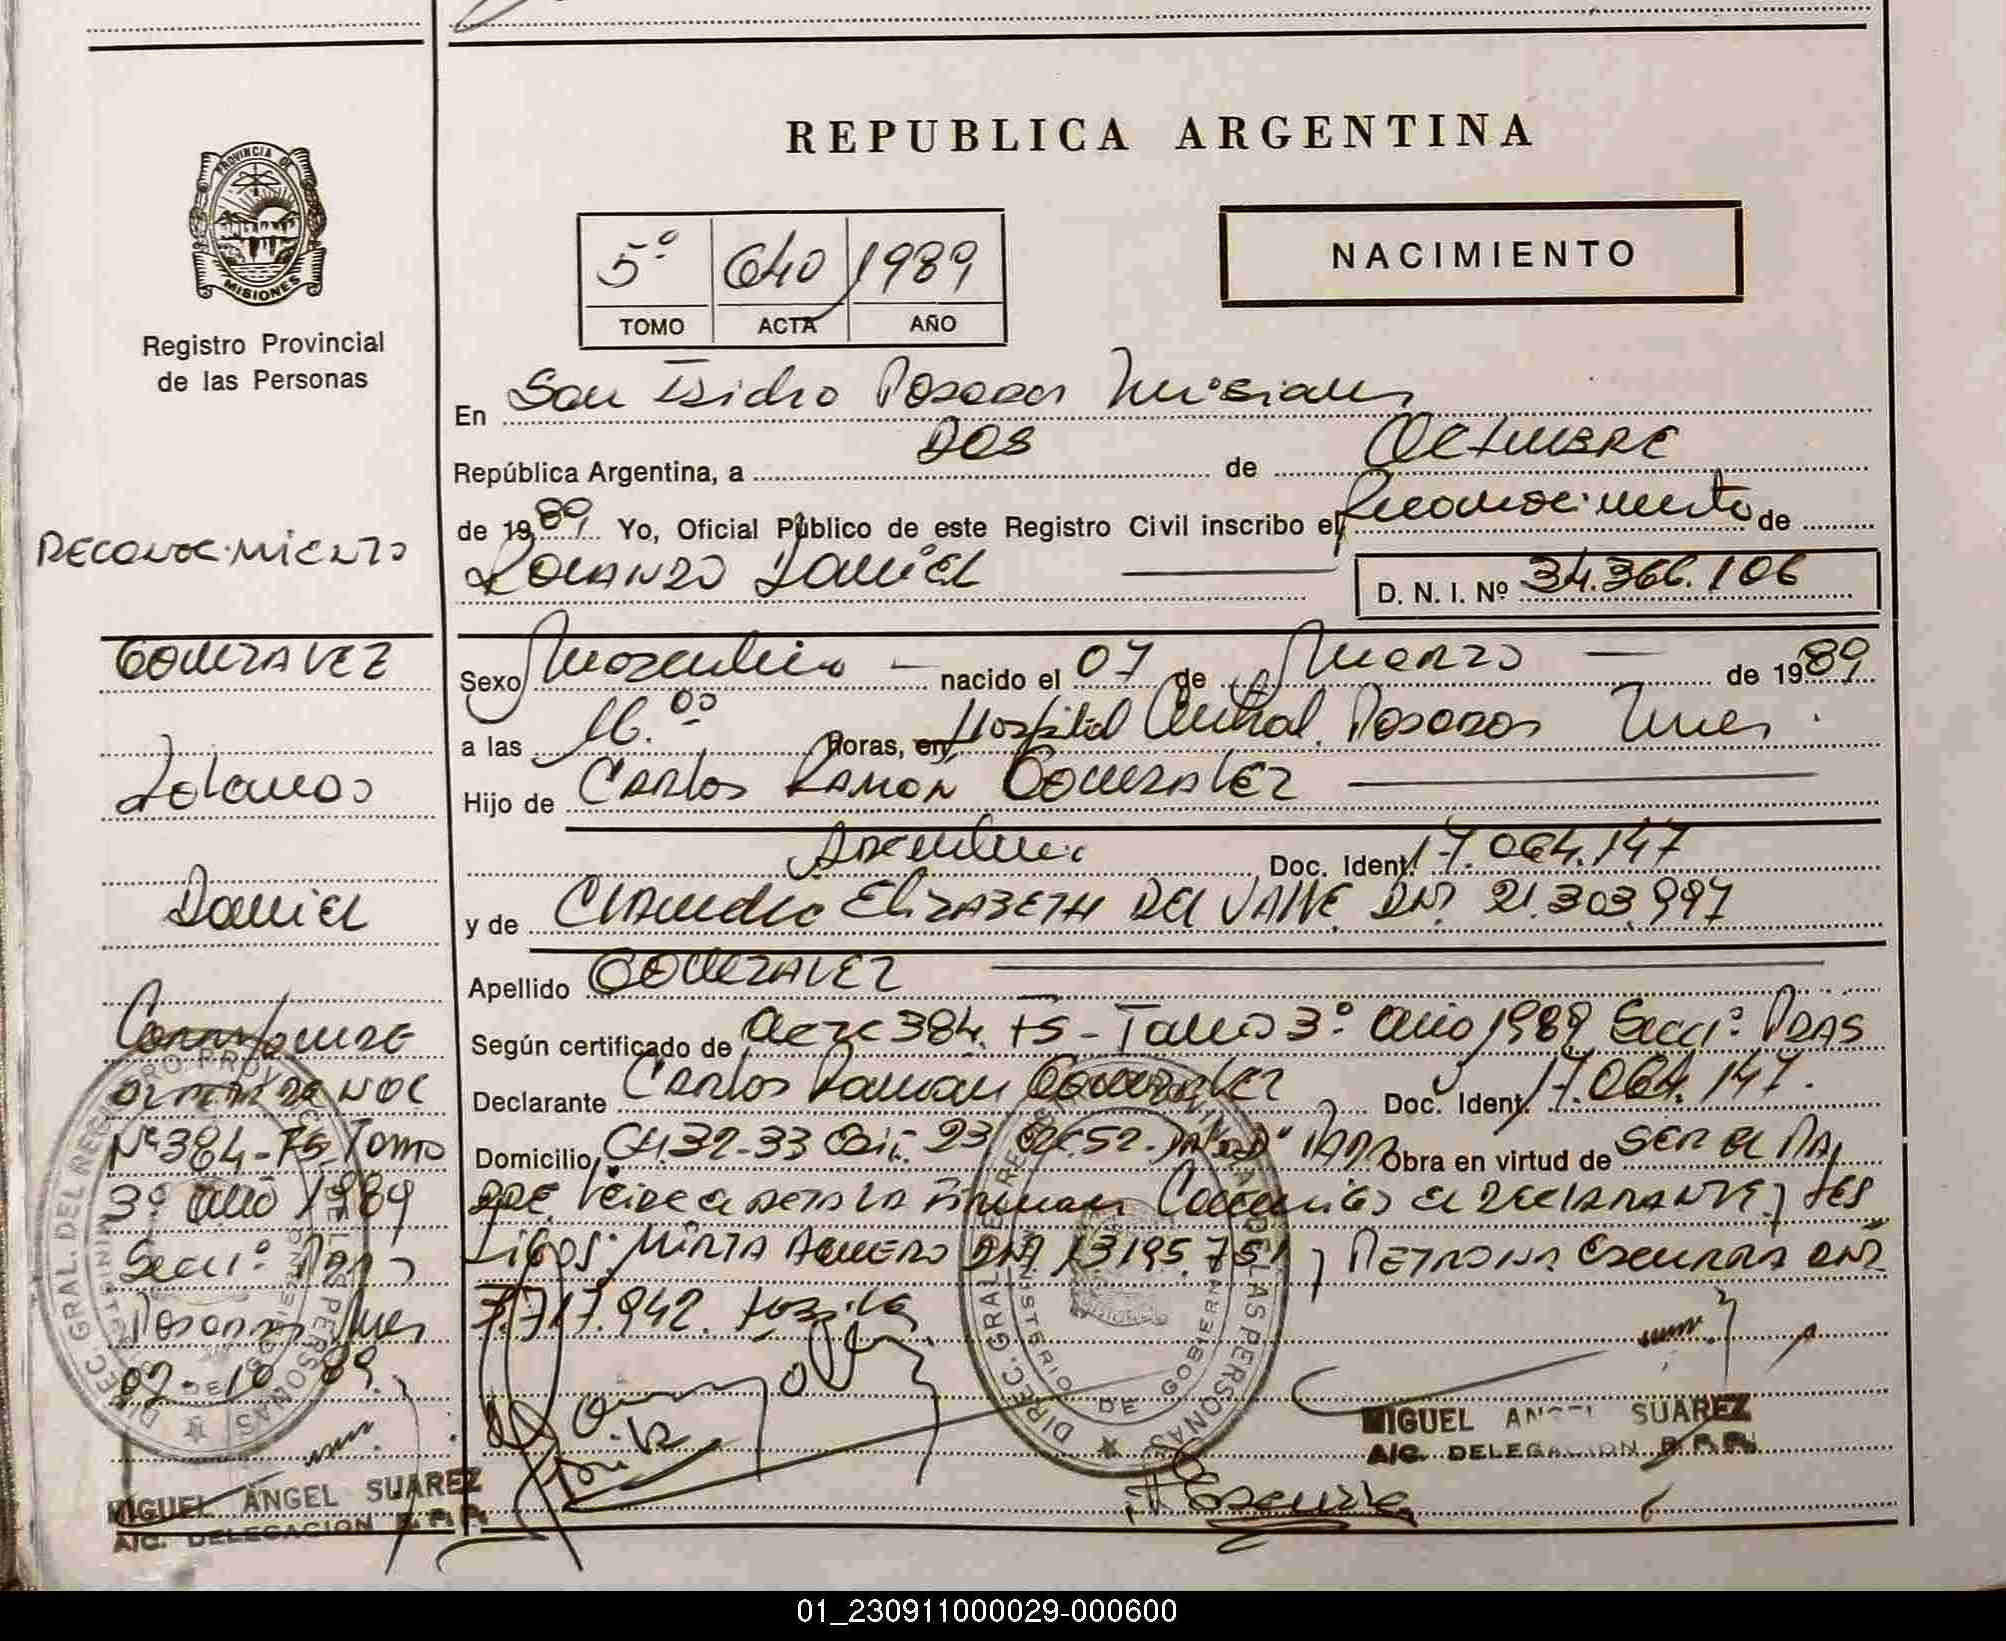 REPUBLICA ARGENTINA
PROVINCIA DE
MISIONES
Registro Provincial
de las Personas
5º 640 1989
TOMO ACTA AÑO
NACIMIENTO
En San Isidro Posadas Misiones
República Argentina, a DOS de OCTUBRE
de 1989 Yo, Oficial Público de este Registro Civil inscribo el Reconocimiento de
RECONOCIMIENTO
ROLANDO DANIEL D. N. I. Nº 34.366.106
GONZALEZ
Rolando
Daniel
Sexo Masculino nacido el 07 de Marzo de 1989
a las 16.00 horas, en Hospital Central Posadas Mnes.
Hijo de Carlos Ramón GONZALEZ
Argentino Doc. Ident. 17.064.147
y de Claudia ELIZABETH DEL VALLE DNI 21.303.997
Apellido GONZALEZ
Según certificado de Acta 384. TS - Tomo 3º año 1989 Secc. 1º PDAS
Declarante Carlos Ramon Gonzalez Doc. Ident. 17.064.147.
Domicilio CH. 32-33 23 52 Obra en virtud de SER EL PA
DRE. Leida el acta la firman Conmigo el DECLARANTE y TES
TIGOS: MIRTA AGUERO DNI 13195.751 y PETRONA ESCURRA DNI
7.717.942.
Corresponde
Nº 384-TS Tomo
3º año 1989
Secc. 1º PDAS
Posadas Mnes
02-10-89.
DIREC. GRAL. DEL REGISTRO PROVINCIAL DE LAS PERSONAS
MINISTERIO DE GOBIERNO
DIREC. GRAL. DEL REGISTRO PROVINCIAL DE LAS PERSONAS
MINISTERIO DE GOBIERNO
MIGUEL ANGEL SUAREZ
A/C. DELEGACION R.P.P.
MIGUEL ANGEL SUAREZ
A/C. DELEGACION R.P.P.
01_230911000029-000600